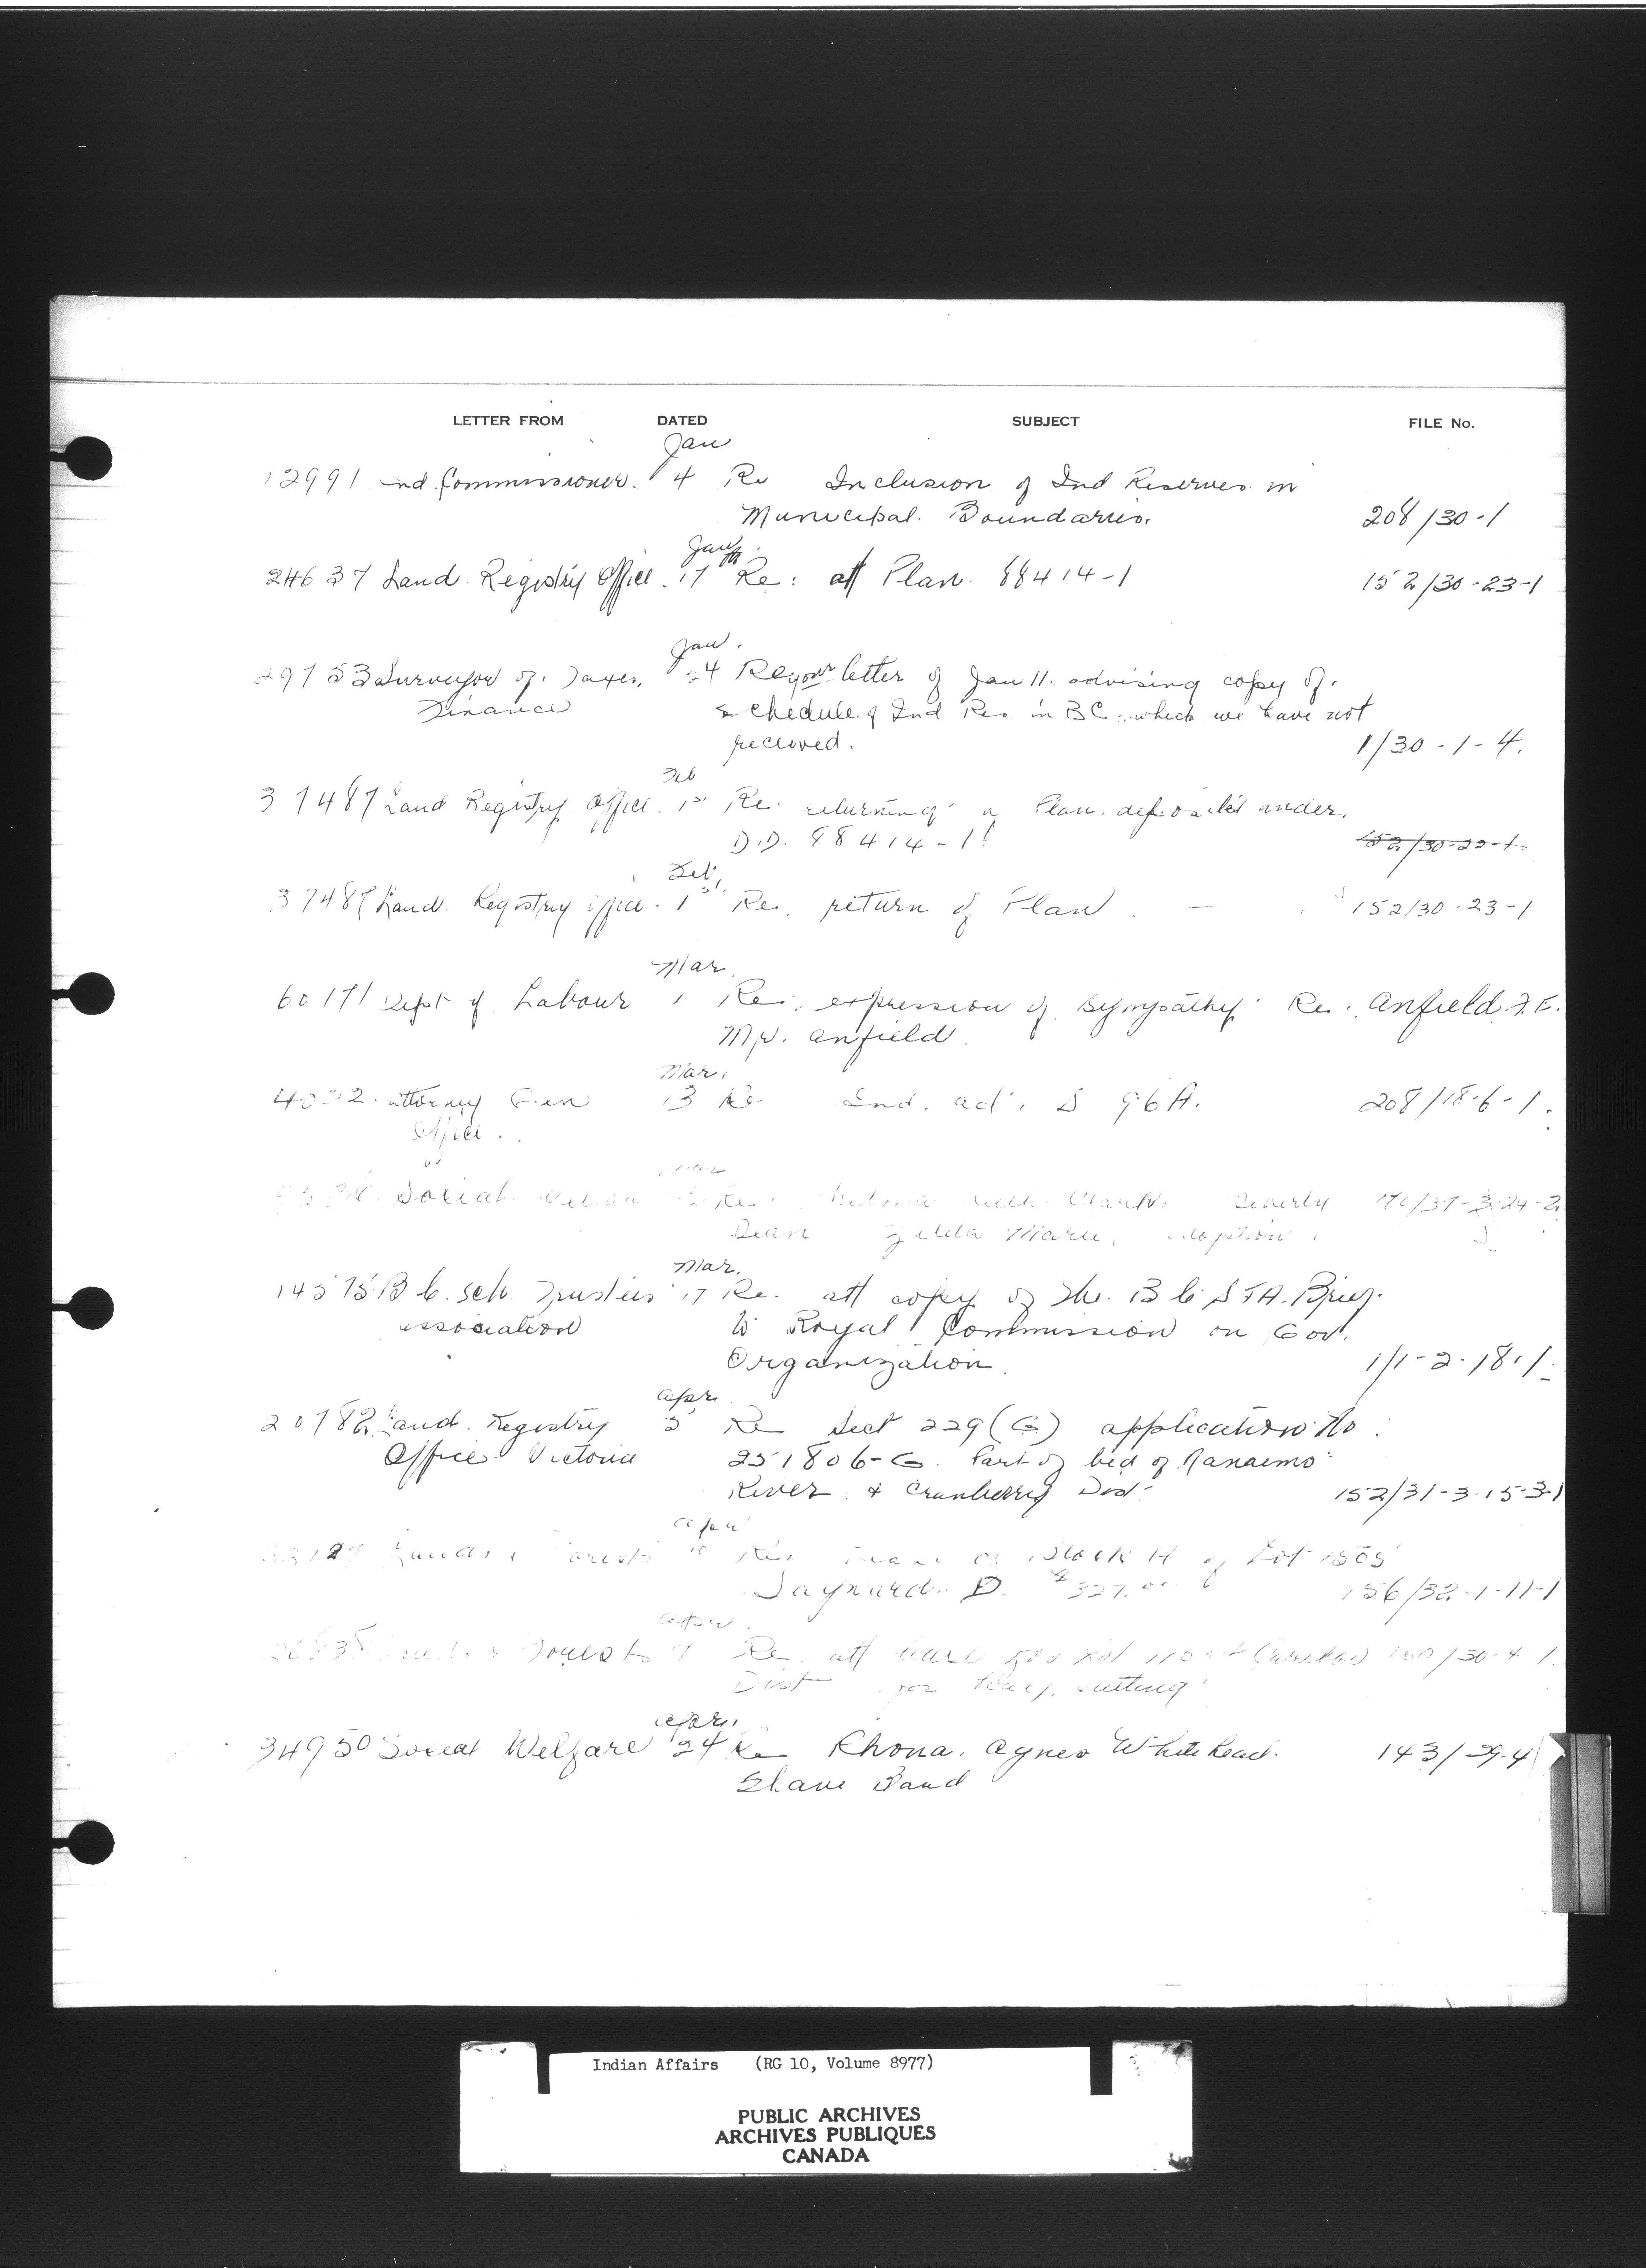 LETTER FROM DATED SUBJECT FILE No.
Jan
12991 Ind. Commissioner. 4 Re Inclusion of Ind Reserves in
Municipal. Boundaries. 208/30-1
Jan
24637 Land Registry Office. 17th Re: att Plan. 88414-1 152/30-23-1
Jan.
29753 Surveyor of. Taxes, 24 Re your letter of Jan 11. advising copy of.
Finance schedule of Ind Res in BC. which we have not
received. 1/30-1-4.
Feb
37487 Land Registry Office. 1st Re. returning of Plan. deposited under.
D.D. 88414-1! 152/30-22-1
Feb,
37487 Land Registry Office. 1st Re. return of Plan. — 152/30-23-1
Mar.
60171 Dept of Labour 1 Re: expression of sympathy Re. Anfield. F.E.
Mr. Anfield.
Mar.
attorney Gen 13 Re. Ind. act. S 96A. 208/18-6-1.
Office.
Social Re. Clark. Beverly
Dean Zelda Marie, adoption.
Mar.
14575 B.C. Sch. Trustees 17 Re. att copy of The. B C S T A. Brief.
association to Royal Commission on Gov.
Organization. 1/1-2-18-1
Apr.
20782 Land. Registry 5 Re Sect 229 (G) application No.
Office Victoria 251806-G. Part of bed of Nanaimo
River & Cranberry Dist. 152/31-3-15-3-1
Apr
Lands Forests Re Block H of Lot 1505
Sayward. D. $327.00 156/32-1-11-1
Forests 7 Re att
Dist for Hay cutting
Apr.
34950 Social Welfare 24 Re Rhona. Agnes Whitehead.
Slave Band 143/29-4
Indian Affairs (RG 10, Volume 8977)
PUBLIC ARCHIVES
ARCHIVES PUBLIQUES
CANADA